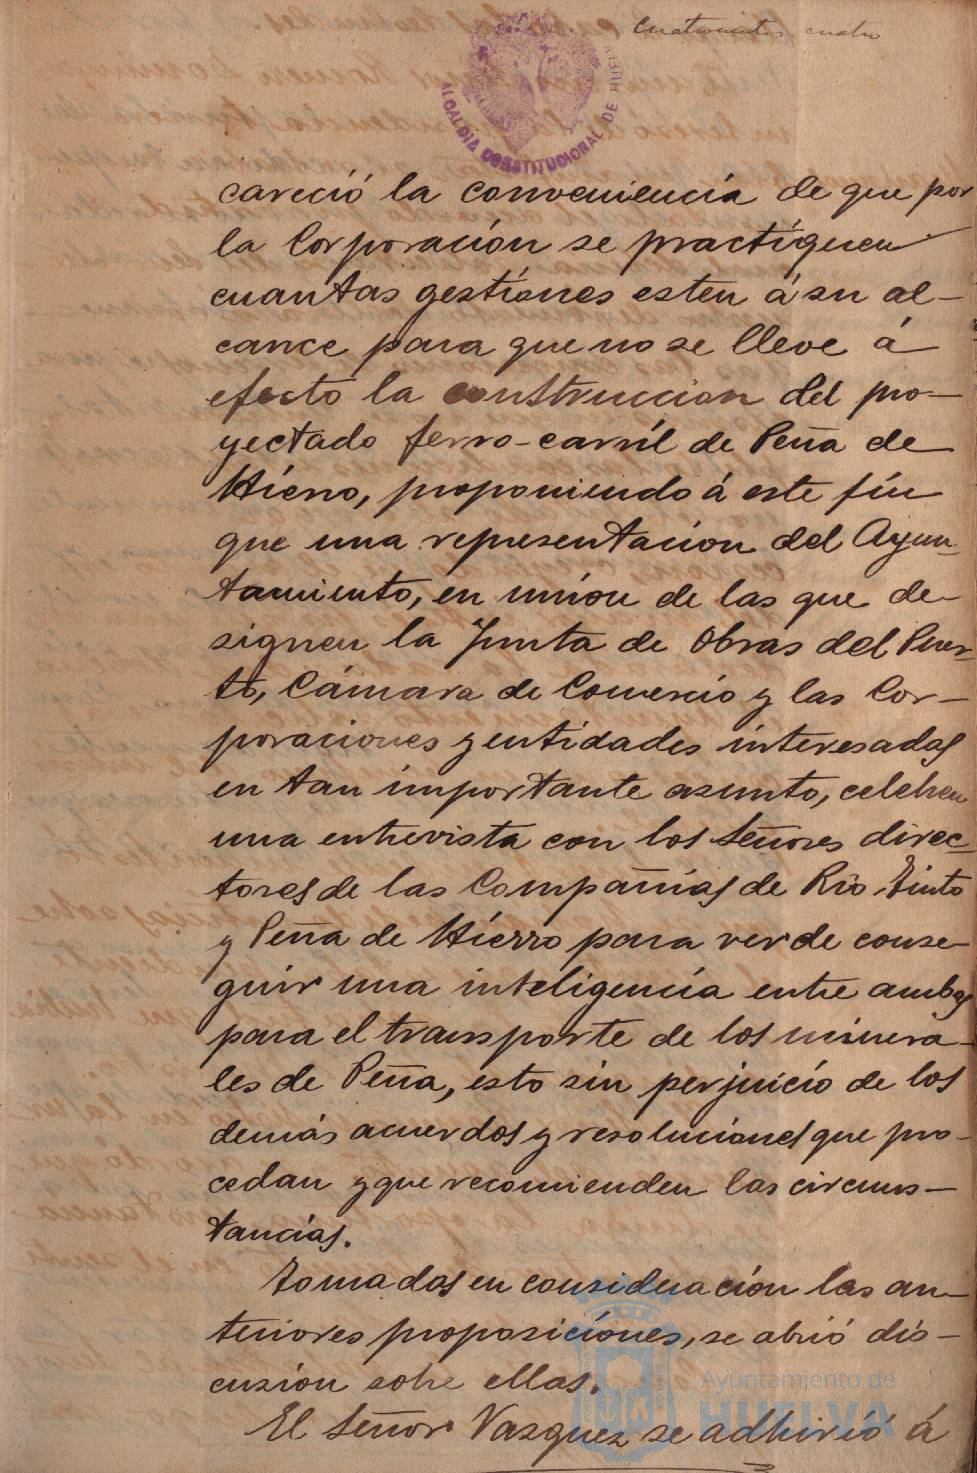 cuatrocientos cuatro
ALCALDIA CONSTITUCIONAL DE HUELVA
careció la conveniencia de que por
la Corporación se practiquen
cuantas gestiones esten á su al-
cance para que no se lleve á
efecto la construccion del pro-
yectado ferro-carril de Peña de
Hierro, proponiendo á este fin
que una representacion del Ayun-
tamiento, en union de las que de-
signen la Junta de Obras del Puer-
to, Cámara de Comercio y las Cor-
poraciones y entidades interesadas
en tan importante asunto, celebren
una entrevista con los Señores direc-
tores de las Compañias de Rio Tinto
y Peña de Hierro para ver de conse-
guir una inteligencia entre ambas
para el transporte de los minera-
les de Peña, esto sin perjuicio de los
demás acuerdos y resoluciones que pro-
cedan y que recomienden las circuns-
tancias.
Tomadas en consideración las an-
teriores proposiciones, se abrió dis-
cusion sobre ellas.
El Señor Vazquez se adhirió á
Ayuntamiento de
HUELVA